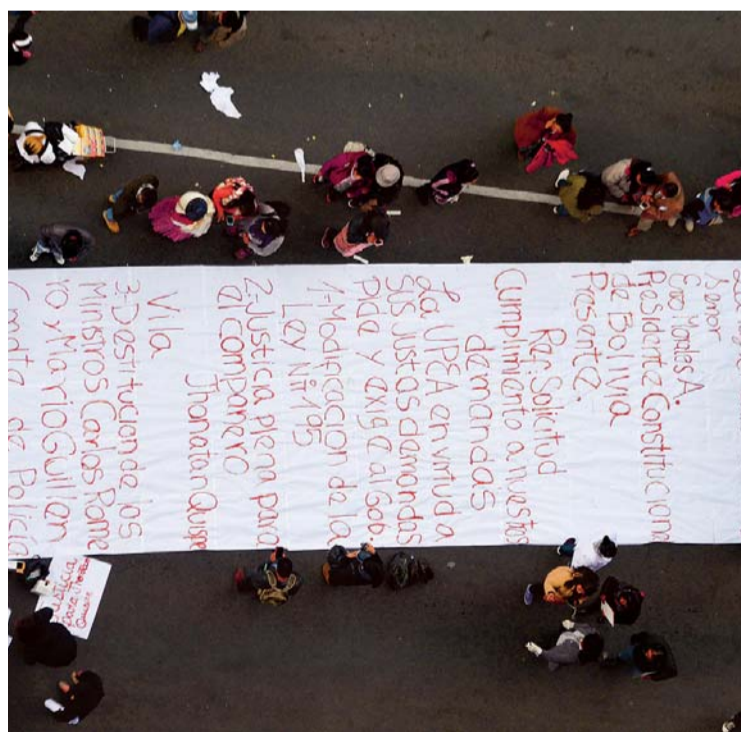 Señor
Evo Morales A.
Presidente Constituciona
de Bolivia
Presente.
Ref: Solicitud
Cumplimiento a nuestras
demandas
La UPEA en virtud a
sus justas demandas
Pide y exige al Gob
1-Modificación de la
Ley Nº 195
2-Justicia plena para
el compañero
Jhonatan Quispe
Vila
3-Destitución de los
Ministros Carlos Rome
ro y Mario Guillen
de Policía
Justicia
para Jhonatan
Quispe